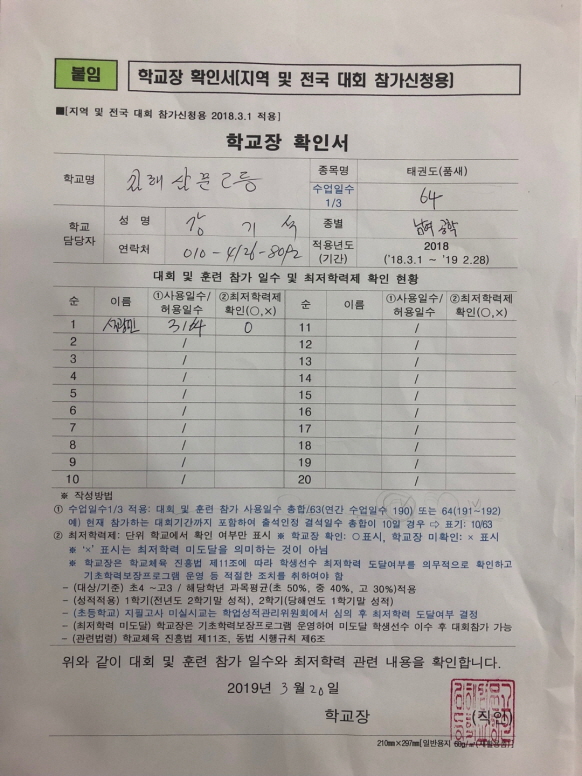 붙임
학교장 확인서(지역 및 전국 대회 참가신청용)
■[지역 및 전국 대회 참가신청용 2018.3.1 적용]
학교장 확인서
학교명 종목명 태권도(품새)
수업일수 1/3 64
학교 담당자 성 명 강 기 석 종별 남여 공학
연락처 010-4126-8092 적용년도 (기간) 2018 ('18.3.1 ~ '19 2.28)
대회 및 훈련 참가 일수 및 최저학력제 확인 현황
순 이름 ①사용일수/허용일수 ②최저학력제 확인(○,×) 순 이름 ①사용일수/허용일수 ②최저학력제 확인(○,×)
1 3/64 0 11 /
2 / 12 /
3 / 13 /
4 / 14 /
5 / 15 /
6 / 16 /
7 / 17 /
8 / 18 /
9 / 19 /
10 / 20 /
※ 작성방법
① 수업일수1/3 적용: 대회 및 훈련 참가 사용일수 총합/63(연간 수업일수 190) 또는 64(191~192)
예) 현재 참가하는 대회기간까지 포함하여 출석인정 결석일수 총합이 10일 경우 ⇨ 표기: 10/63
② 최저학력제: 단위 학교에서 확인 여부만 표시 ※ 학교장 확인: ○표시, 학교장 미확인: × 표시
※ '×' 표시는 최저학력 미도달을 의미하는 것이 아님
※ 학교장은 학교체육 진흥법 제11조에 따라 학생선수 최저학력 도달여부를 의무적으로 확인하고
기초학력보장프로그램 운영 등 적절한 조치를 취하여야 함
- (대상/기준) 초4 ~고3 / 해당학년 과목평균(초 50%, 중 40%, 고 30%)적용
- (성적적용) 1학기(전년도 2학기말 성적), 2학기(당해연도 1학기말 성적)
- (초등학교) 지필고사 미실시교는 학업성적관리위원회에서 심의 후 최저학력 도달여부 결정
- (최저학력 미도달) 학교장은 기초학력보장프로그램 운영하여 미도달 학생선수 이수 후 대회참가 가능
- (관련법령) 학교체육 진흥법 제11조, 동법 시행규칙 제6조
위와 같이 대회 및 훈련 참가 일수와 최저학력 관련 내용을 확인합니다.
2019년 3 월 20 일
학교장 (직인)
210㎜×297㎜[일반용지 60g/㎡(재활용품)]